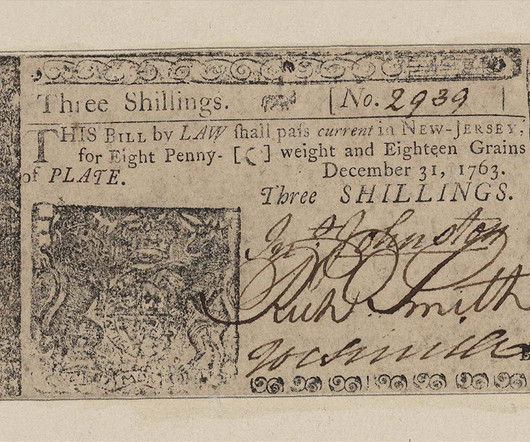 Three Shillings. [No. 2939
THIS BILL by LAW shall pass current in NEW-JERSEY,
for Eight Penny-[C] weight and Eighteen Grains
of PLATE. December 31, 1763.
Three SHILLINGS.
Jno. Johnston
Richd. Smith